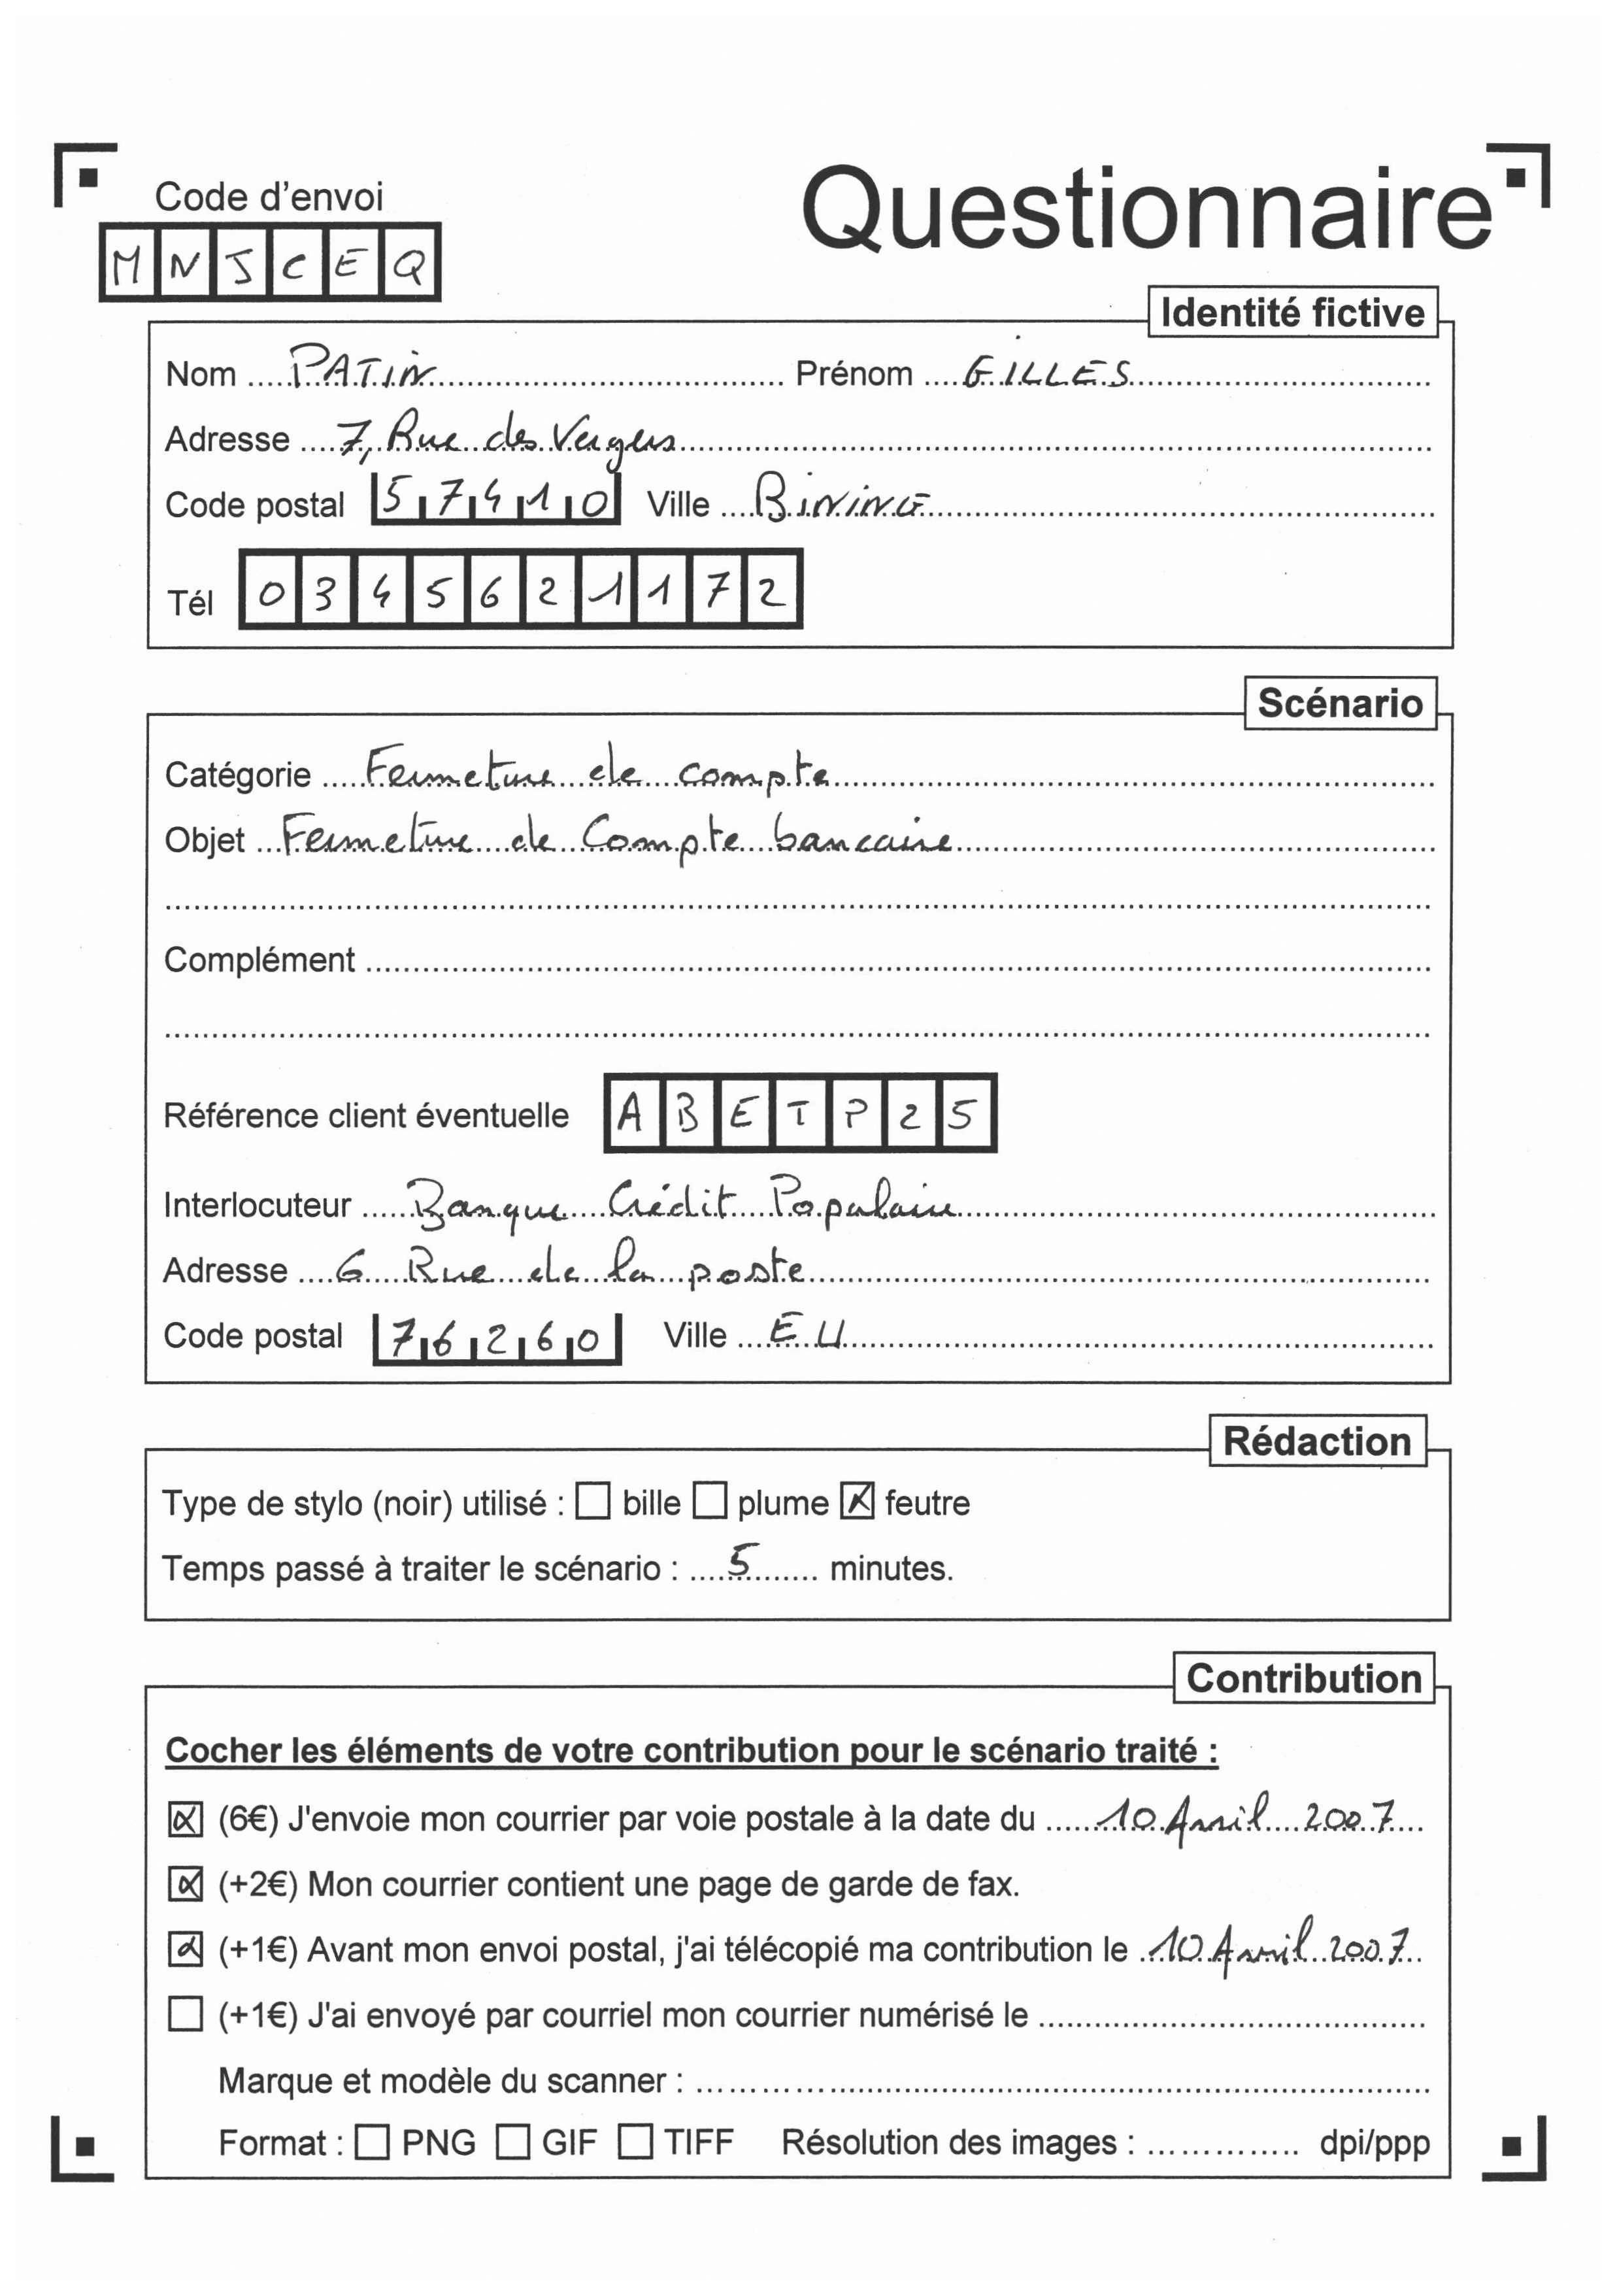 Code d'envoi
Questionnaire
MNJCEQ
Identité fictive
Nom PATIN Prénom GILLES
Adresse 7, Rue des Vergers
Code postal 57410 Ville BiNiNG
Tél 0345621172
Scénario
Catégorie Fermeture de compte
Objet Fermeture de Compte bancaire
Complément
Référence client éventuelle ABETP25
Interlocuteur Banque Crédit Populaire
Adresse 6 Rue de la poste
Code postal 76260 Ville EU
Rédaction
Type de stylo (noir) utilisé : ☐ bille ☐ plume ☒ feutre
Temps passé à traiter le scénario : 5 minutes.
Contribution
Cocher les éléments de votre contribution pour le scénario traité :
☒ (6€) J'envoie mon courrier par voie postale à la date du 10 Avril 2007
☒ (+2€) Mon courrier contient une page de garde de fax.
☒ (+1€) Avant mon envoi postal, j'ai télécopié ma contribution le 10 Avril 2007
☐ (+1€) J'ai envoyé par courriel mon courrier numérisé le
Marque et modèle du scanner :
Format : ☐ PNG ☐ GIF ☐ TIFF Résolution des images : dpi/ppp